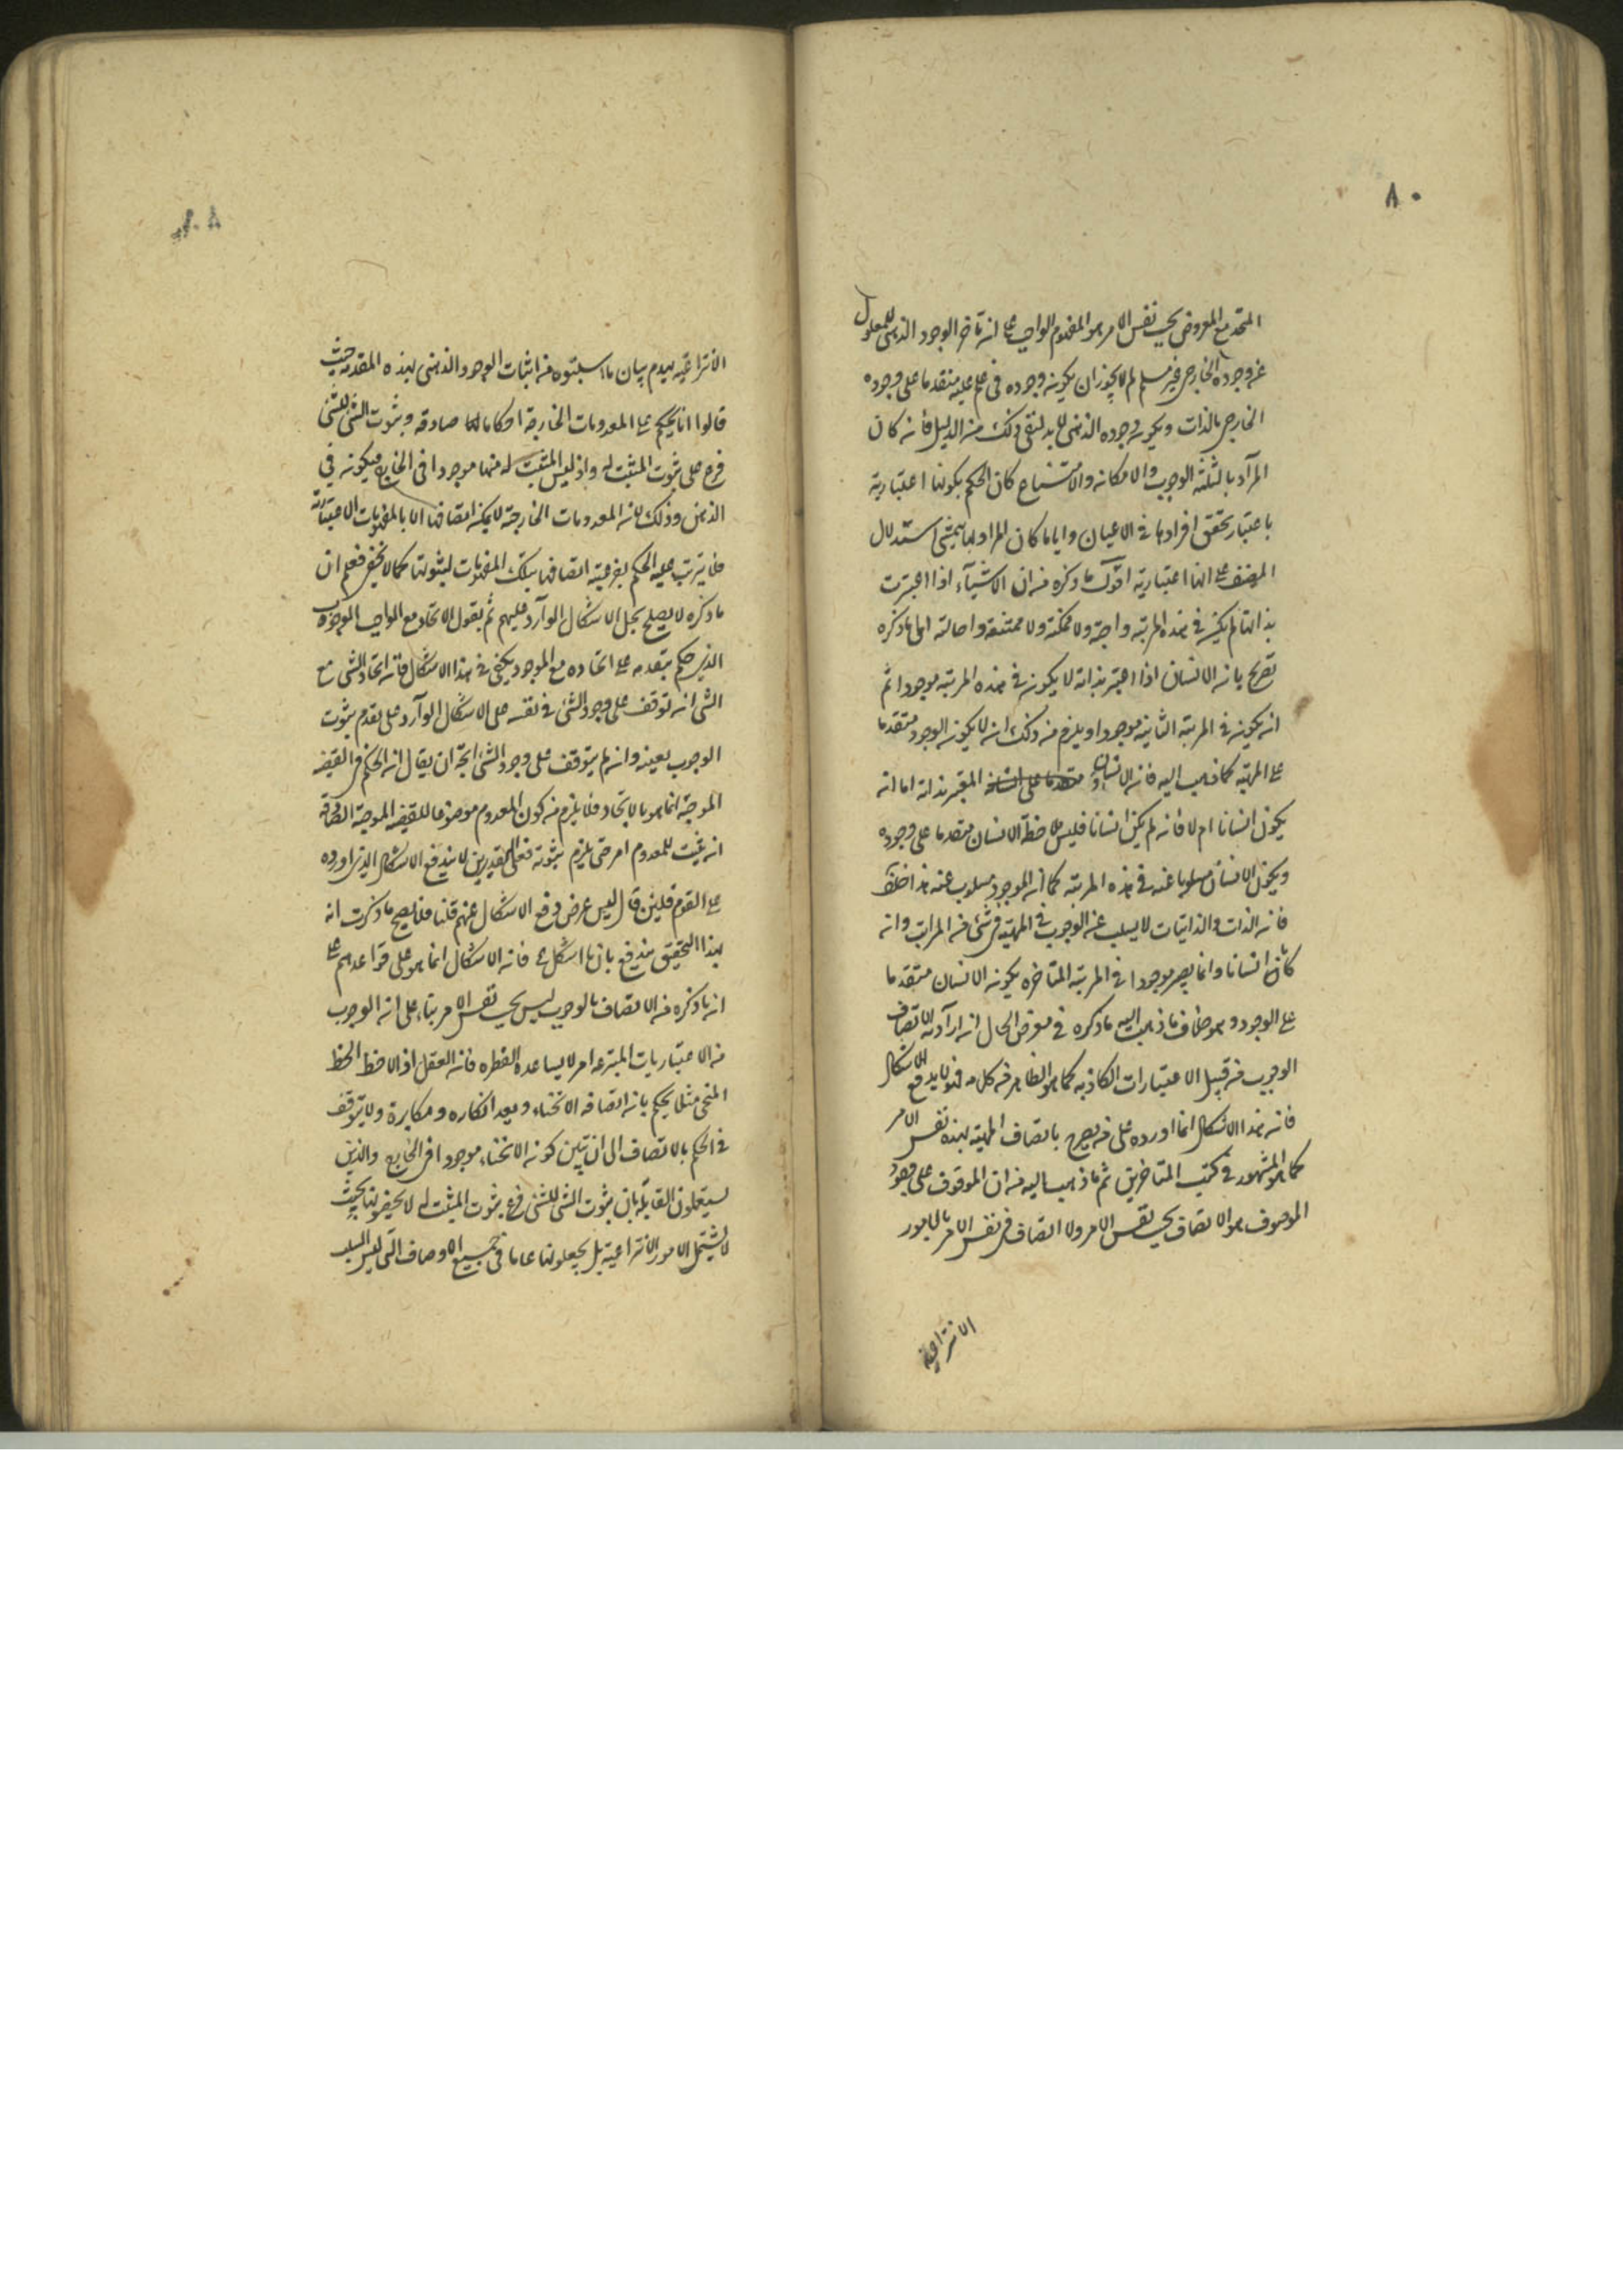 ٨٠
المتحد مع المعروض بحسب نفس الامر هو المفهوم الواجب على ان تاخر الوجود الذهنى للمعلول
عن وجوده الخارجى غير مسلم لم لا يجوز ان يكون وجوده فى علم علته متقدما على وجوده
الخارجى بالذات ويكون وجوده الذهنى لا بد لنفى ذلك من الدليل فان كان
المراد بالثلثة الوجوب والامكان والامتناع كان الحكم بكونها اعتبارية
باعتبار تحقق افرادها فى الاعيان واياما كان المراد بها يتمشى استدلال
المصنف على انها اعتبارية اقول ما ذكره من ان الاشيآء اذا اعتبرت
بذاتها لم يكن فى هذه المرتبة واجبة ولا ممكنة ولا ممتنعة واحالته الى ما ذكره
تصريح بان الانسان اذا اعتبر بذاته لا يكون فى هذه المرتبة موجودا ثم
انه يكون فى المرتبة الثانية موجودا ويلزم من ذلك ان لا يكون الوجود متقدما
على المهية كما ذهب اليه فان الانسان المعتبر بذاته اما انه
يكون انسانا ام لا فان لم يكن انسانا فليس ملاحظة الانسان متقدما على وجوده
ويكون الانسان مسلوبا عنه فى هذه المرتبة كما ان الموجود مسلوب عنه هذا خلف
فان الذات والذاتيات لا يسلب عن المهية فى شئ من المراتب وان
كان انسانا وانما يصير موجودا فى المرتبة المتاخرة يكون الانسان متقدما
على الوجود وهو خلاف ما ذهب اليه ما ذكره فى معرض الحل ان اراد ان الاتصاف
الوجوب من قبيل الاعتبارات الكاذبة كما هو الظاهر من كلامه فهو لا يدفع الاشكال
فان هذا الاشكال انما اورده على من يصرح باتصاف المهية بهذه نفس الامر
كما هو المشهور فى كتب المتاخرين ثم ما ذهب اليه من ان الموقوف على وجود
الموصوف هو الاتصاف بحسب نفس الامر ولا اتصاف فى نفس الامر بالامور
الانتزاعية
الانتزاعية يهدم بيان ما سيثبتوه من اثبات الوجود الذهنى بهذه المقدمة حيث
قالوا انا نحكم على المعدومات الخارجة احكاما صادقة وثبوت الشئ للشئ
فرع على ثبوت المثبت له واذ ليس المثبت له منها موجودا فى الخارج فيكون فى
الذهن وذلك لان المعدومات الخارجية لا يمكن اتصافها الا بالمفهومات الاعتبارية
فلا يترتب عليه الحكم بفرعية اتصافها بتلك المفهومات لثبوتها كما لا يخفى فعلم ان
ما ذكره لا يصلح لحل الاشكال الوآرد عليهم ثم نقول الاتحاد مع الواجب الوجوب
الذى حكم بتقدمه على اتحاده مع الموجود يكفى فى هذا الاشكال فان اتحاد الشئ مع
الشئ ان توقف على وجود الشئ فى نفسه على الاشكال الوآرد على تقدم ثبوت
الوجوب بعينه وان لم يتوقف على وجود الشئ اتجه ان يقال ان الحكم فى القضية
الموجبة انما هو بالاتحاد فلا يلزم من كون المعدوم موضوعا للقضية الموجبة الصادقة
ان يثبت للمعدوم امر حتى يلزم ثبوته فعلى التقديرين لا يندفع الاشكال الذى اورده
على القوم فلئن قال ليس غرضى دفع الاشكال عنهم قلنا فلا يصح ما ذكرت انه
بهذا التحقيق يندفع فان الاشكال انما هو على قواعدهم على
ان ما ذكره من الاتصاف بالوجوب ليس بحسب نفس الامر بناء على ان الوجوب
من الاعتباريات المنتزعة امر لا يساعده الفطرة فان العقل اذا لاحظ الخط
المنحنى مثلا يحكم بان اتصافه الانحناء ويعد انكاره مكابرة ولا يتوقف
فى الحكم بالاتصاف الى ان يتبين كون الانحناء موجودا فى الخارج والذين
يستعملون القايلة بان ثبوت الشئ للشئ فرع ثبوت المثبت له لا يخصونها بحيث
لا يشتمل الامور الانتزاعية بل يجعلونها عاما فى جميع الاوصاف التى ليس السلب